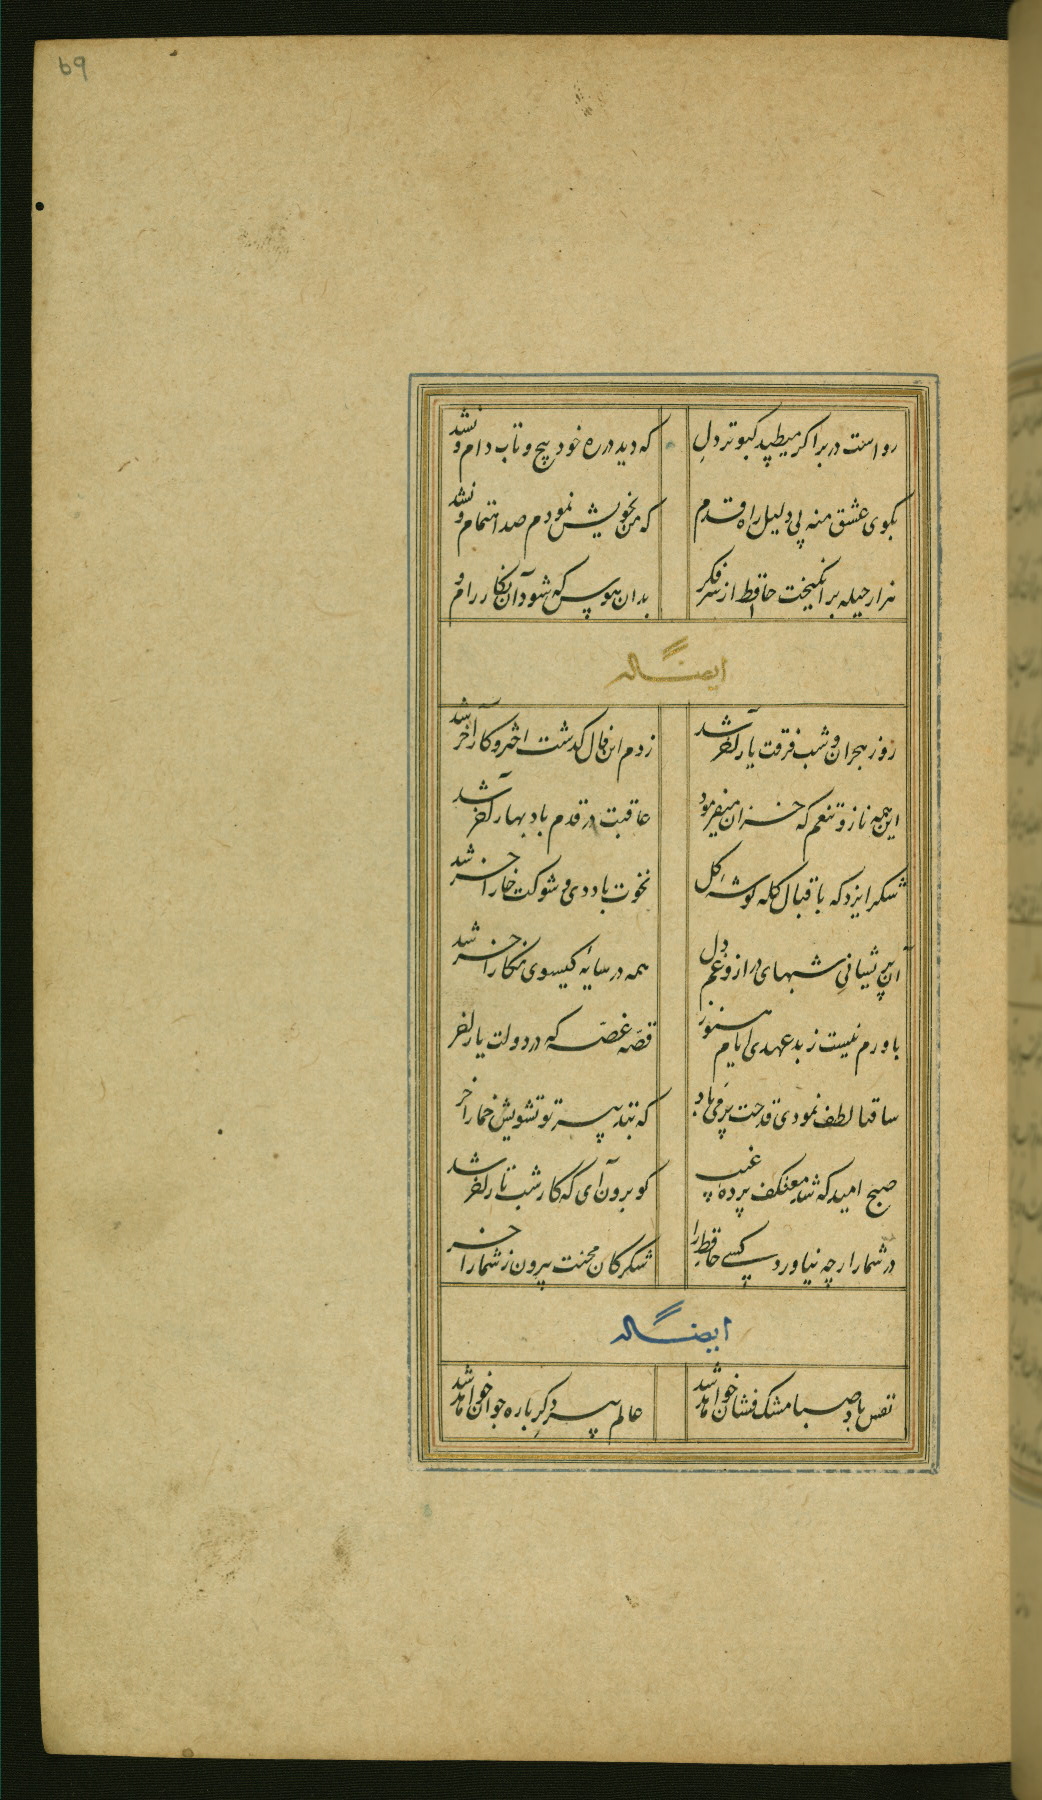 69
رواست در بر اکر میطپد کبوتر دلِ که دید در ره خود پیچ و تاب دام و نشد
بکوی عشق منه پی دلیل راه قدم که من بخویش نمودم صد اهتمام و نشد
هزار حیله برانکیخت حافظ از سر فکر بدان هوس که شود آن نکار رام و
ایضاً له
روز هجران و شب فرقت یار آخر شد زدم این فال کدشت اختر و کار آخر شد
این همه ناز و تنعم که خزان میفرمود عاقبت در قدم باد بهار آخر شد
شکر ایزد که باقبال کله کوشهٔ کل نخوت باد دی و شوکت خار آخر شد
آن پریشانی شبهای دراز و غم دل همه در سایهٔ کیسوی نکار آخر شد
باورم نیست ز بدعهدی ایام هنوز قصّه غصّه که در دولت یار آخر
ساقیا لطف نمودی قدحت پر می باد که بتدبیر تو تشویش خمار آخر
صبح امید که شد معتکف پردهٔ غیب کو برون آی که کار شب تار آخر شد
در شمار ار چه نیاورد کسی حافظ را شکر کان محنت بیرون ز شمار آخر
ایضاً له
نفس باد صبا مشک فشان خواهد شد عالم پیر دکر باره جوان خواهد شد